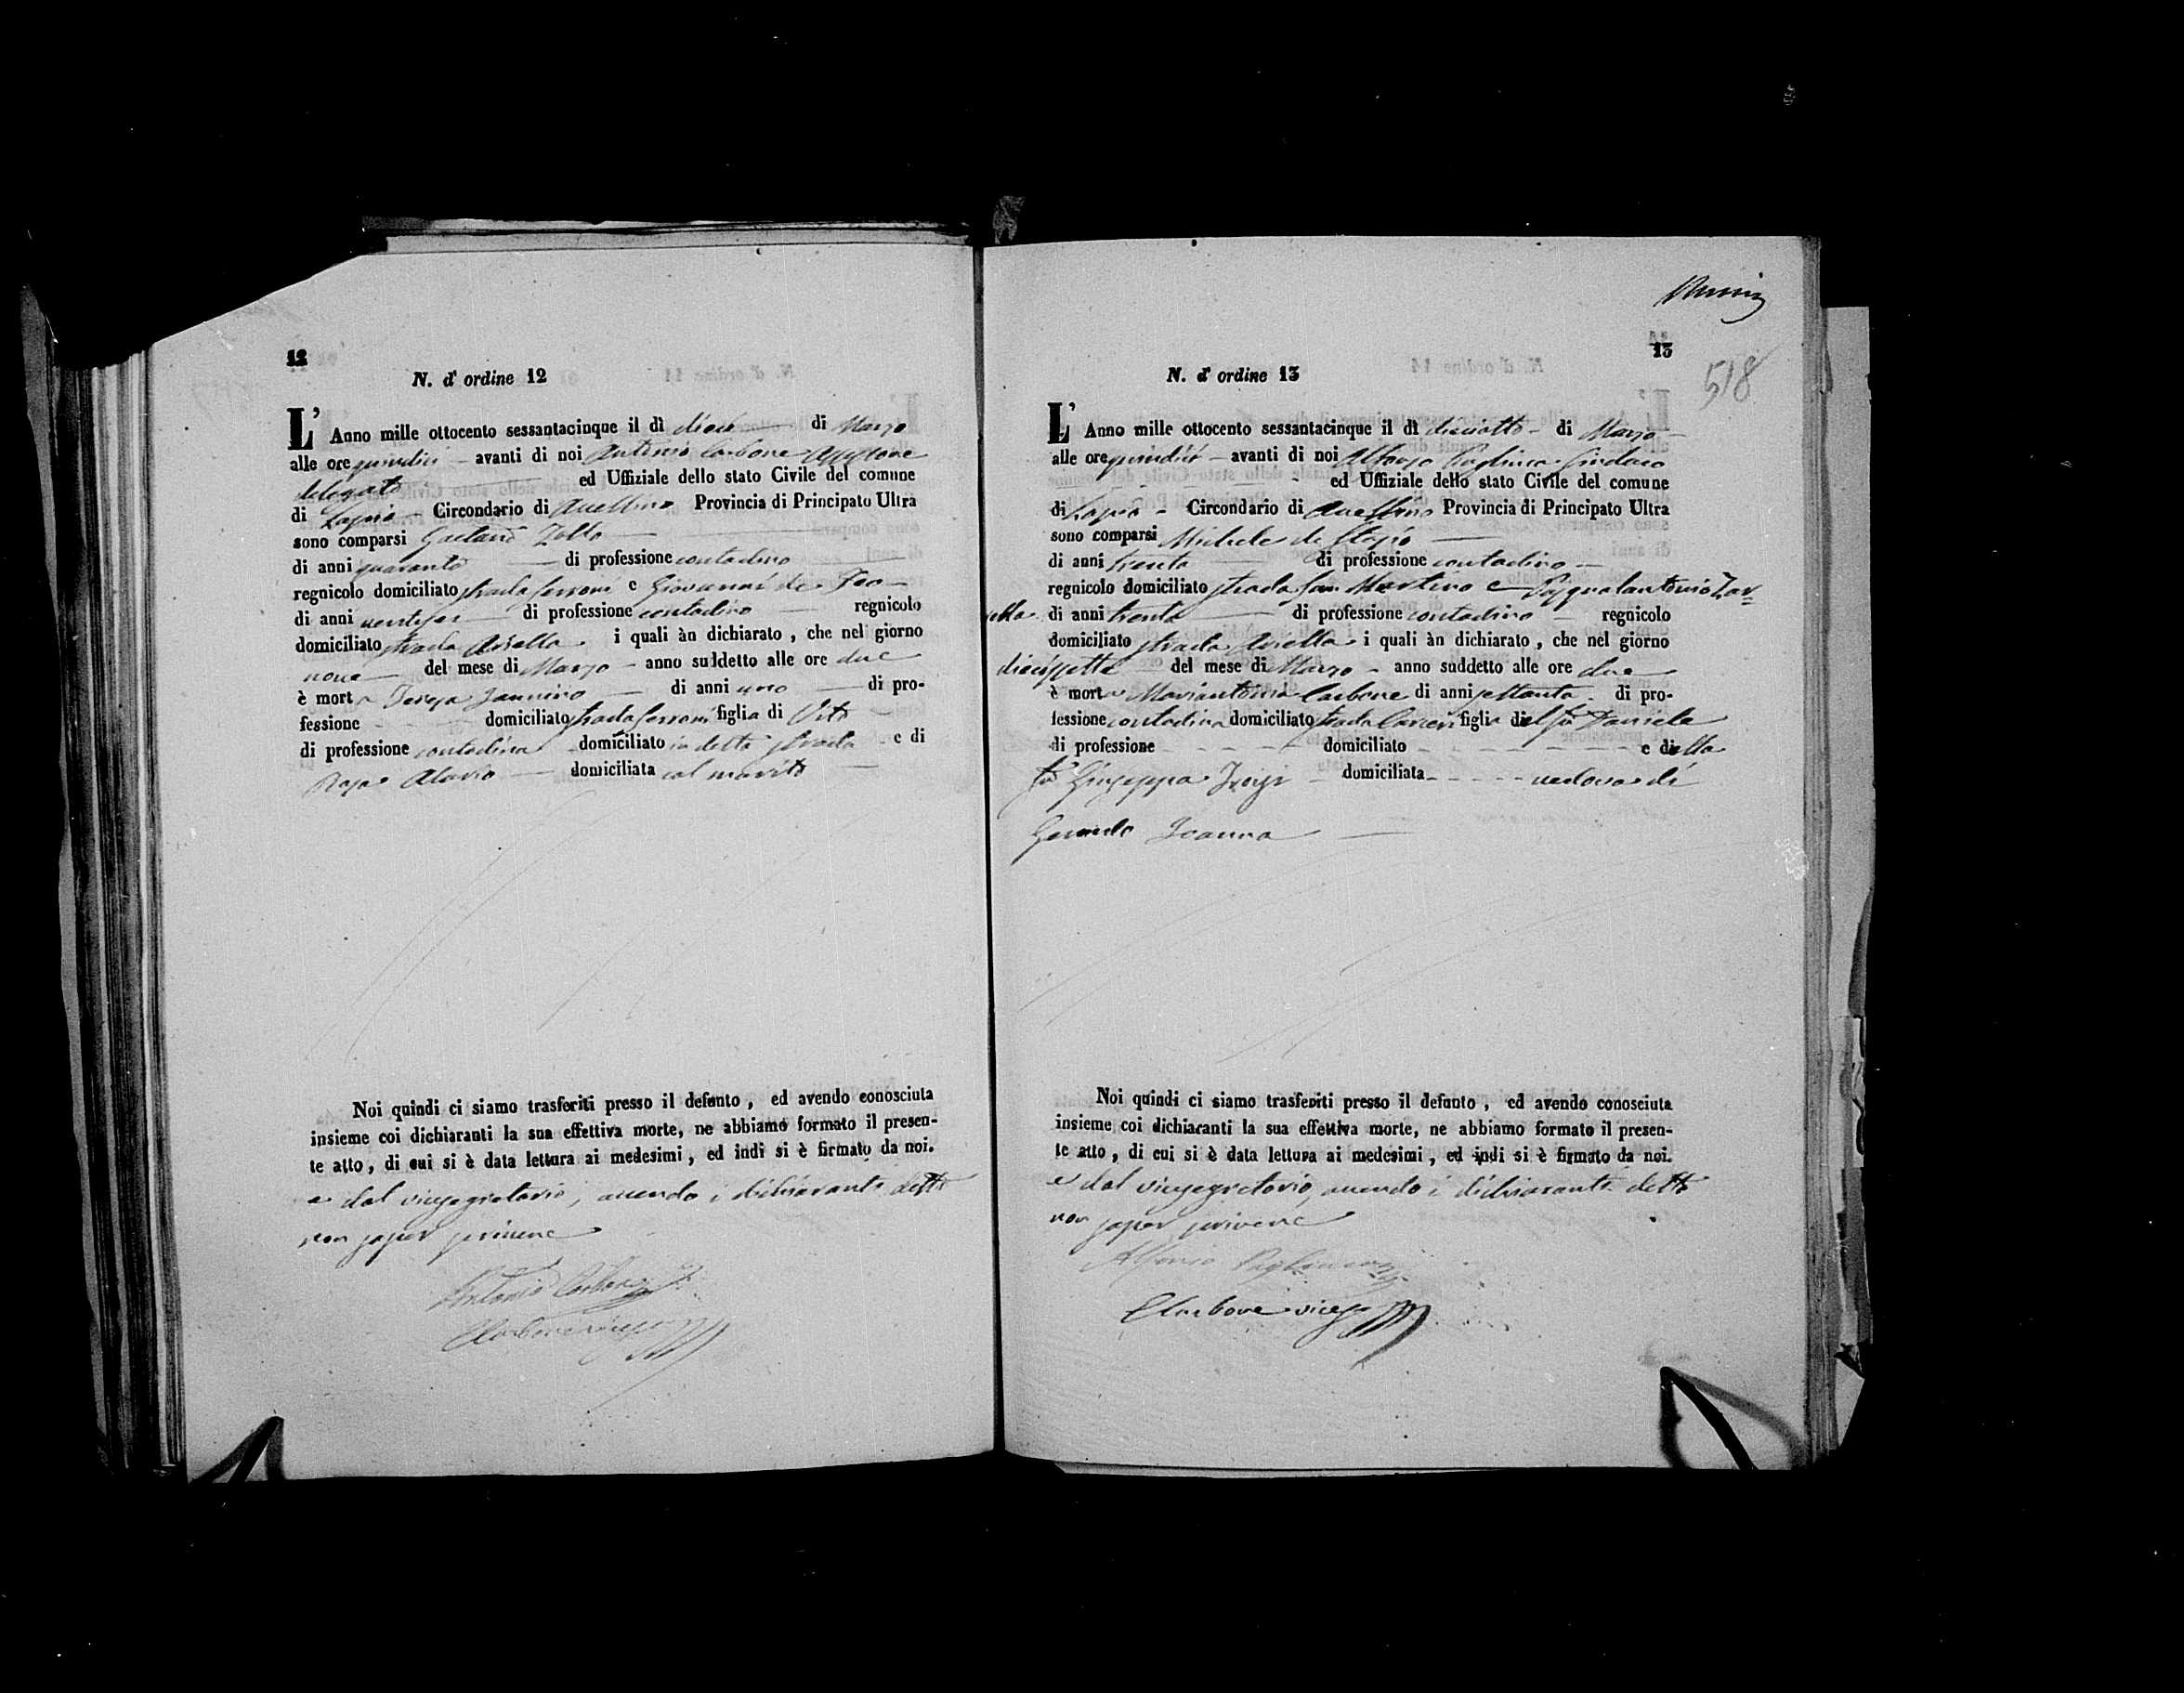 12
N. d' ordine 12
L' Anno mille ottocento sessantacinque il dì dieci di Marzo
alle ore quindici avanti di noi Antonio Carbone Assessore
delegato ed Uffiziale dello stato Civile del comune
di Lapio Circondario di Avellino Provincia di Principato Ultra
sono comparsi Gaetano Zollo
di anni quaranta di professione contadino
regnicolo domiciliato strada Cerroni e Giovanni de Feo
di anni ventisei di professione contadino regnicolo
domiciliato strada Arsella i quali àn dichiarato, che nel giorno
nove del mese di Marzo anno suddetto alle ore due
è morta Teresa Iannino di anni uno di pro-
fessione domiciliato strada Cerroni figlia di Vito
di professione contadina domiciliato in detta strada e di
Rosa domiciliata col marito
Noi quindi ci siamo trasferiti presso il defunto, ed avendo conosciuta
insieme coi dichiaranti la sua effettiva morte, ne abbiamo formato il presen-
te atto, di cui si è data lettura ai medesimi, ed indi si è firmato da noi.
e dal vicesegretario, avendo i dichiaranti detto
non saper scrivere
Antonio Carbone
Carbone viceseg
13
518
N. d' ordine 13
L' Anno mille ottocento sessantacinque il dì diciotto di Marzo
alle ore quindici avanti di noi Alfonso Pagliuca Sindaco
ed Uffiziale dello stato Civile del comune
di Lapio Circondario di Avellino Provincia di Principato Ultra
sono comparsi Michele de Stasio
di anni trenta di professione contadino
regnicolo domiciliato strada San Martino e Pasqualantonio Zar=
rella di anni trenta di professione contadino regnicolo
domiciliato strada Arsella i quali àn dichiarato, che nel giorno
diecissette del mese di Marzo anno suddetto alle ore due
è morta Mariantonia Carbone di anni settanta di pro-
fessione contadina domiciliato strada Carceri figlia del fu Daniele
di professione domiciliato e della
fu Giuseppa domiciliata vedova di
Gerardo Ioanna
Noi quindi ci siamo trasferiti presso il defunto, ed avendo conosciuta
insieme coi dichiaranti la sua effettiva morte, ne abbiamo formato il presen-
te atto, di cui si è data lettura ai medesimi, ed indi si è firmato da noi.
e dal vicesegretario, avendo i dichiaranti detto
non saper scrivere
Alfonso Pagliuca
Carbone viceseg